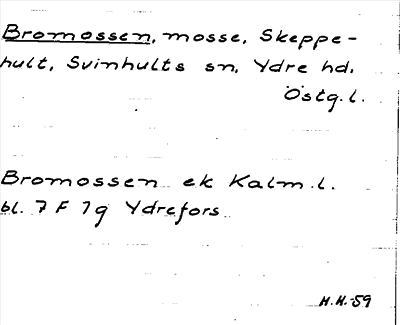 Bromossen, mosse, Skeppe-
hult, Svinhults sn, Ydre hd,
Östg. l.
Bromossen ek Kalm. l.
bl. 7 F 7g Ydrefors
H.H.-59